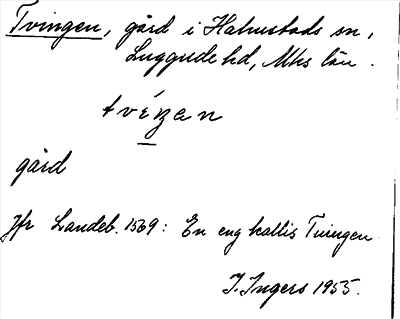 Tvingen, gård i Halmstads sn,
Luggude hd, Mhs län.
tvéŋən
gård
Jfr Landeb. 1569: En eng kallis Tvingen.
I. Ingers 1955.